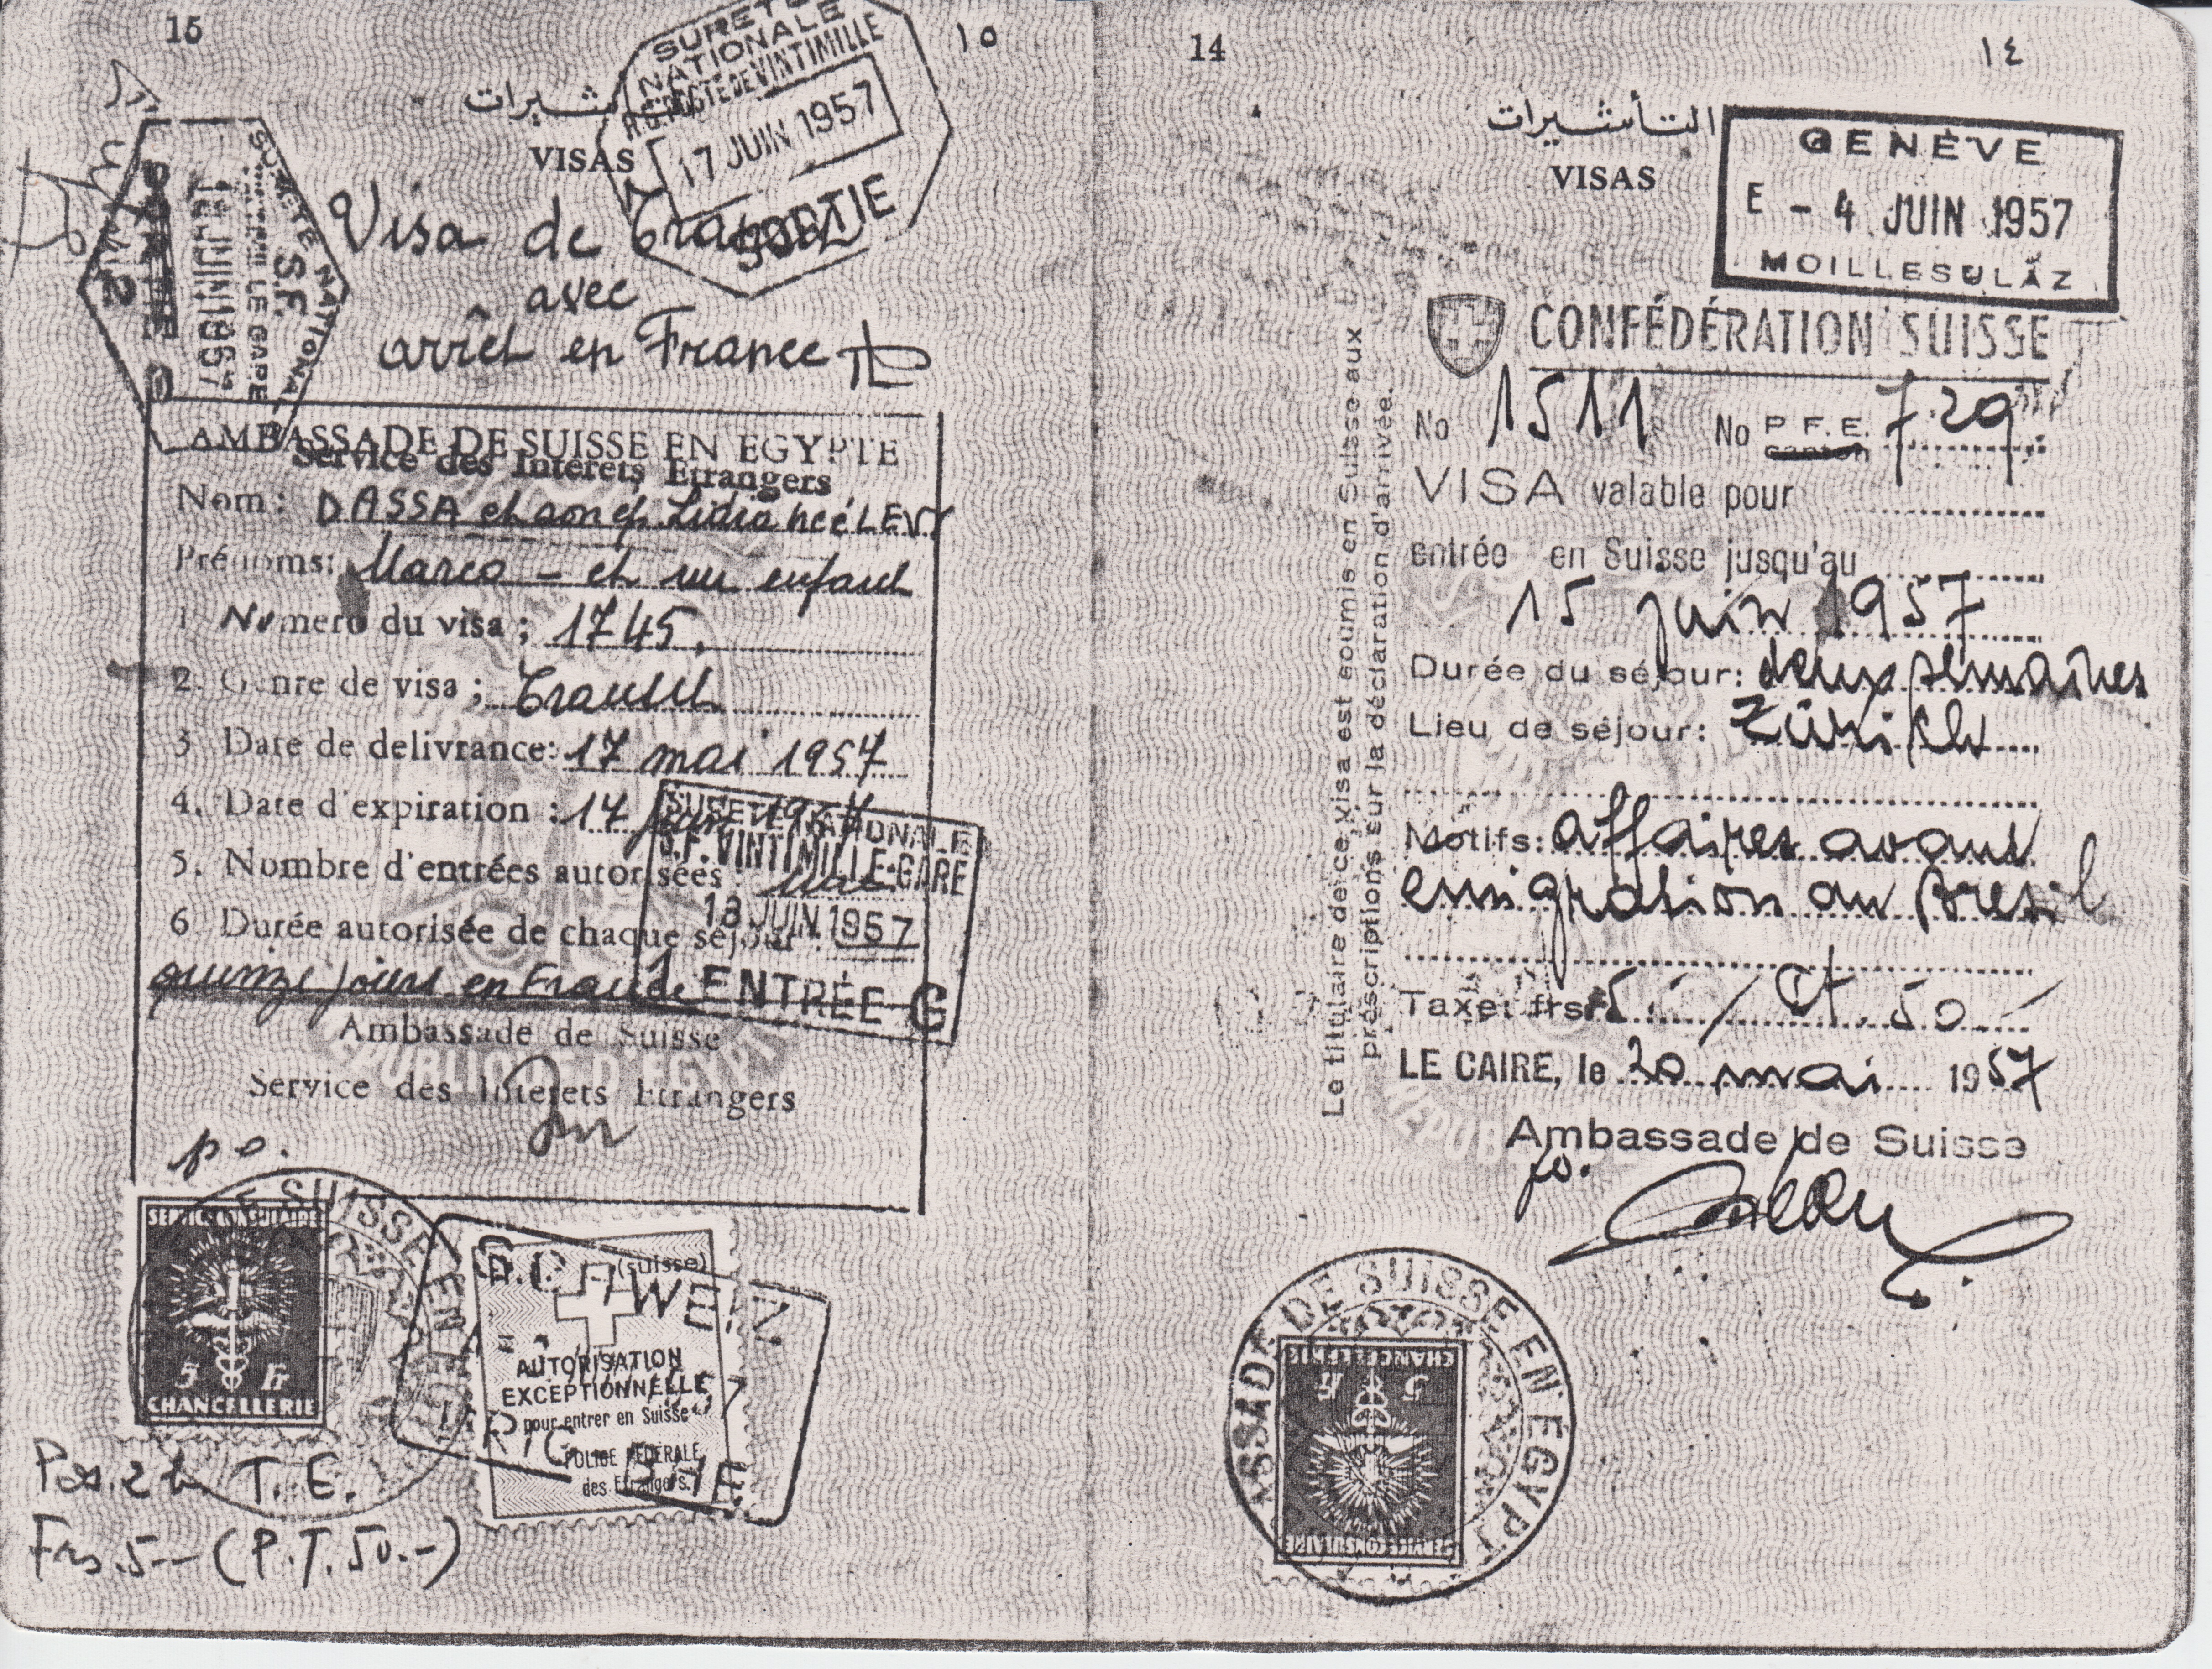 15
١٥
VISAS
SURETE
NATIONALE
POSTE DE VINTIMILLE
17 JUIN 1957
SORTIE
S.F.
JUIN 1957
Visa de
avec
arrêt en France
AMBASSADE DE SUISSE EN EGYPTE
Service des Intérêts Etrangers
Nom: DASSA et son ép. Lidia née LEVY
Prénoms: Marco - et un enfant
1 Numero du visa ; 1745.
2. Genre de visa ; Transit
3 Date de delivrance: 17 mai 1957
4. Date d'expiration : 17 juin 1957
5. Nombre d'entrées autorisées : une
6 Durée autorisée de chaque séjour :
quinze jours en France
SURETE NATIONALE
S.F. VINTIMILLE-GARE
18 JUIN 1957
ENTRÉE G
Ambassade de Suisse
Service des Interets Etrangers
po.
SERVICE CONSULAIRE
5 fr
CHANCELLERIE
(suisse)
AUTORISATION
EXCEPTIONNELLE
pour entrer en Suisse
POLICE FÉDÉRALE
des Etrangers.
SCHWEIZ
T. E.
Frs. 5.-- (P.T. 50.-)
14
١٤
التأشيرات
VISAS
GENÈVE
E - 4 JUIN 1957
MOILLESULAZ
CONFÉDÉRATION SUISSE
No 1511 No P.F.E. 729
canton
VISA valable pour
entrée en Suisse jusqu'au
15 juin 1957
Durée du séjour: deux semaines
Lieu de séjour: Zürich
Motifs: affaires avant
emigration au Bresil
Taxe: frs 5.- / Pt. 50.-
LE CAIRE, le 20 mai 1957
Ambassade de Suisse
po.
Le titulaire de ce visa est soumis en Suisse aux
prescriptions sur la déclaration d'arrivée.
AMBASSADE DE SUISSE EN EGYPTE
SERVICE CONSULAIRE
5 fr
CHANCELLERIE